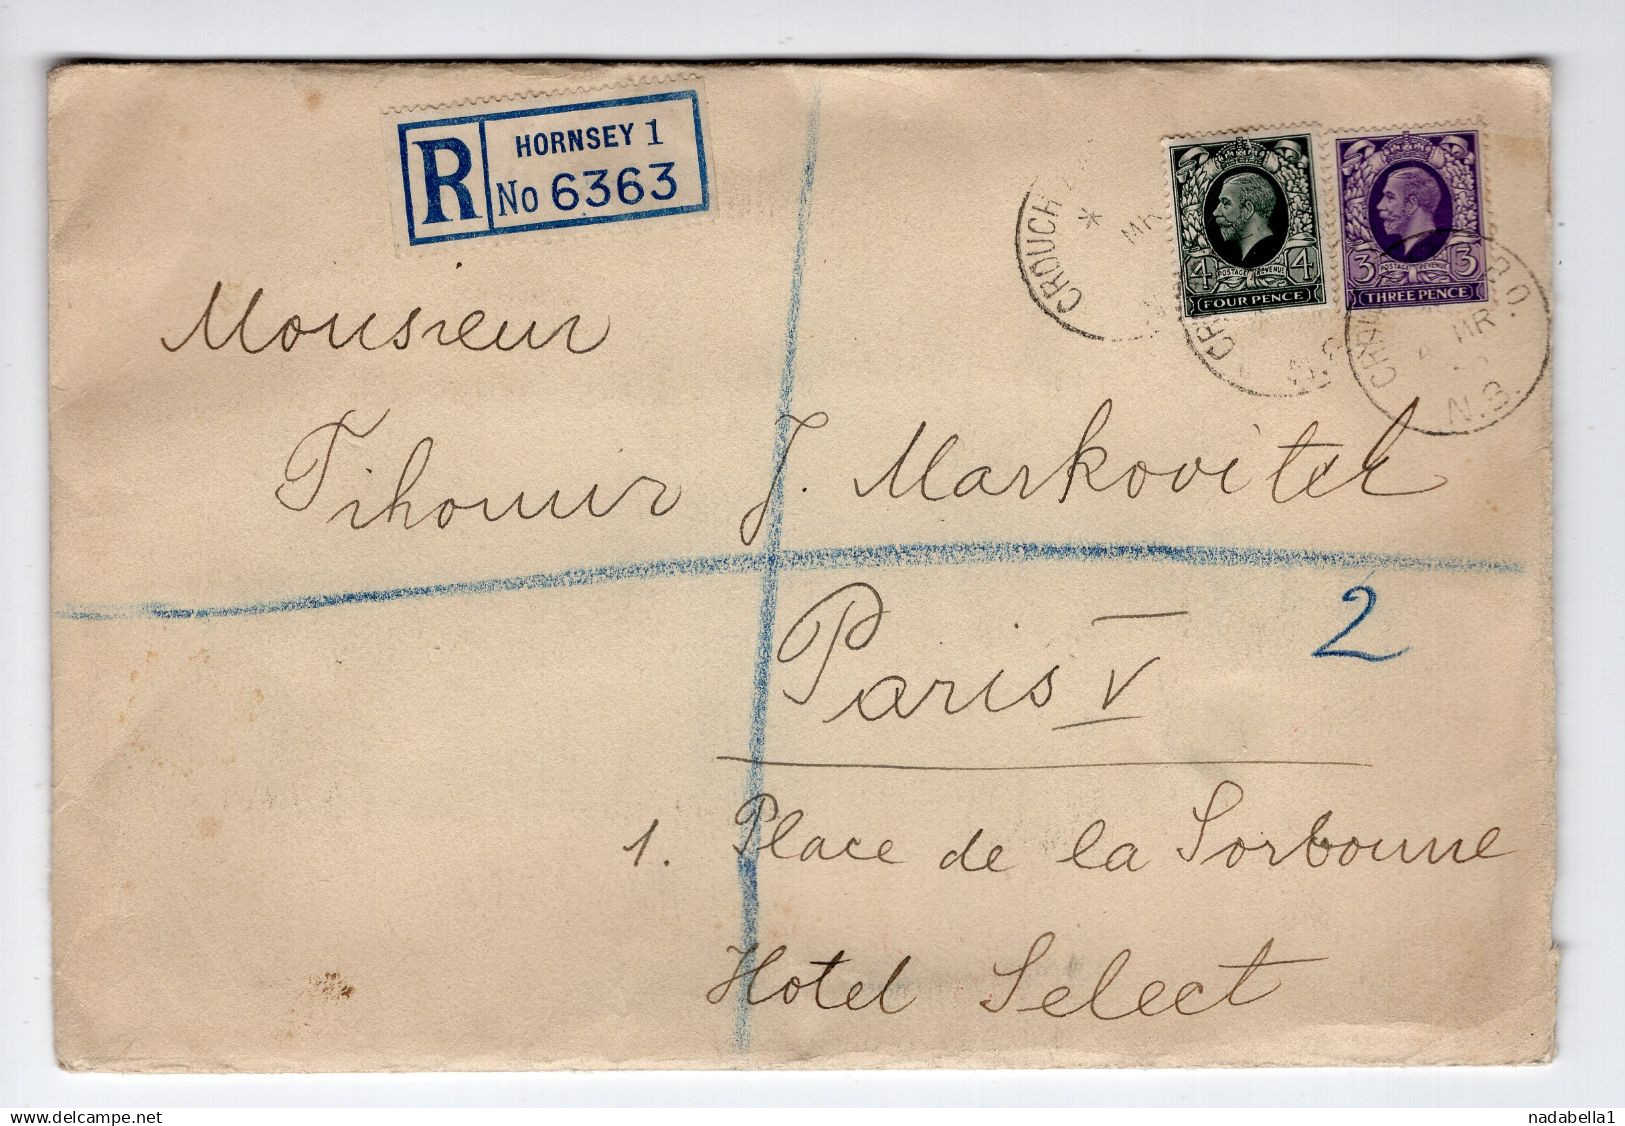 R HORNSEY 1
No 6363
CROUCH
MR
4 POSTAGE REVENUE 4
FOUR PENCE
3 POSTAGE REVENUE 3
THREE PENCE
B.O.
MR
N.8.
N.8.
Monsieur
Tihomir J. Markovitch
2
Paris V
1. Place de la Sorbonne
Hotel Select
delcampe.net
nadabella1